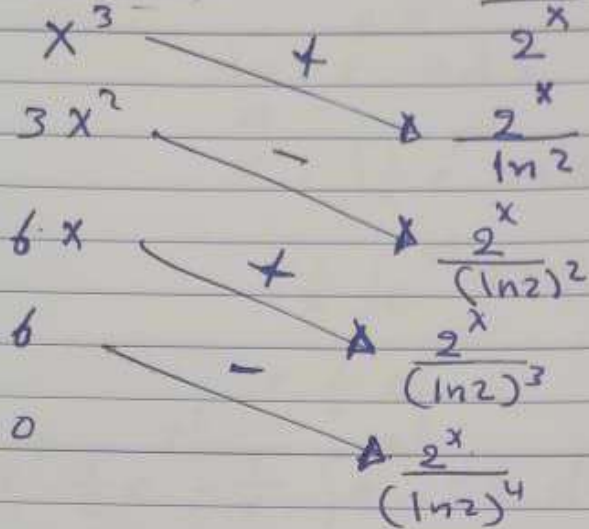 x³ + 2ˣ
3x² - 2ˣ/ln2
6·x + 2ˣ/(ln2)²
6 - 2ˣ/(ln2)³
0 2ˣ/(ln2)⁴